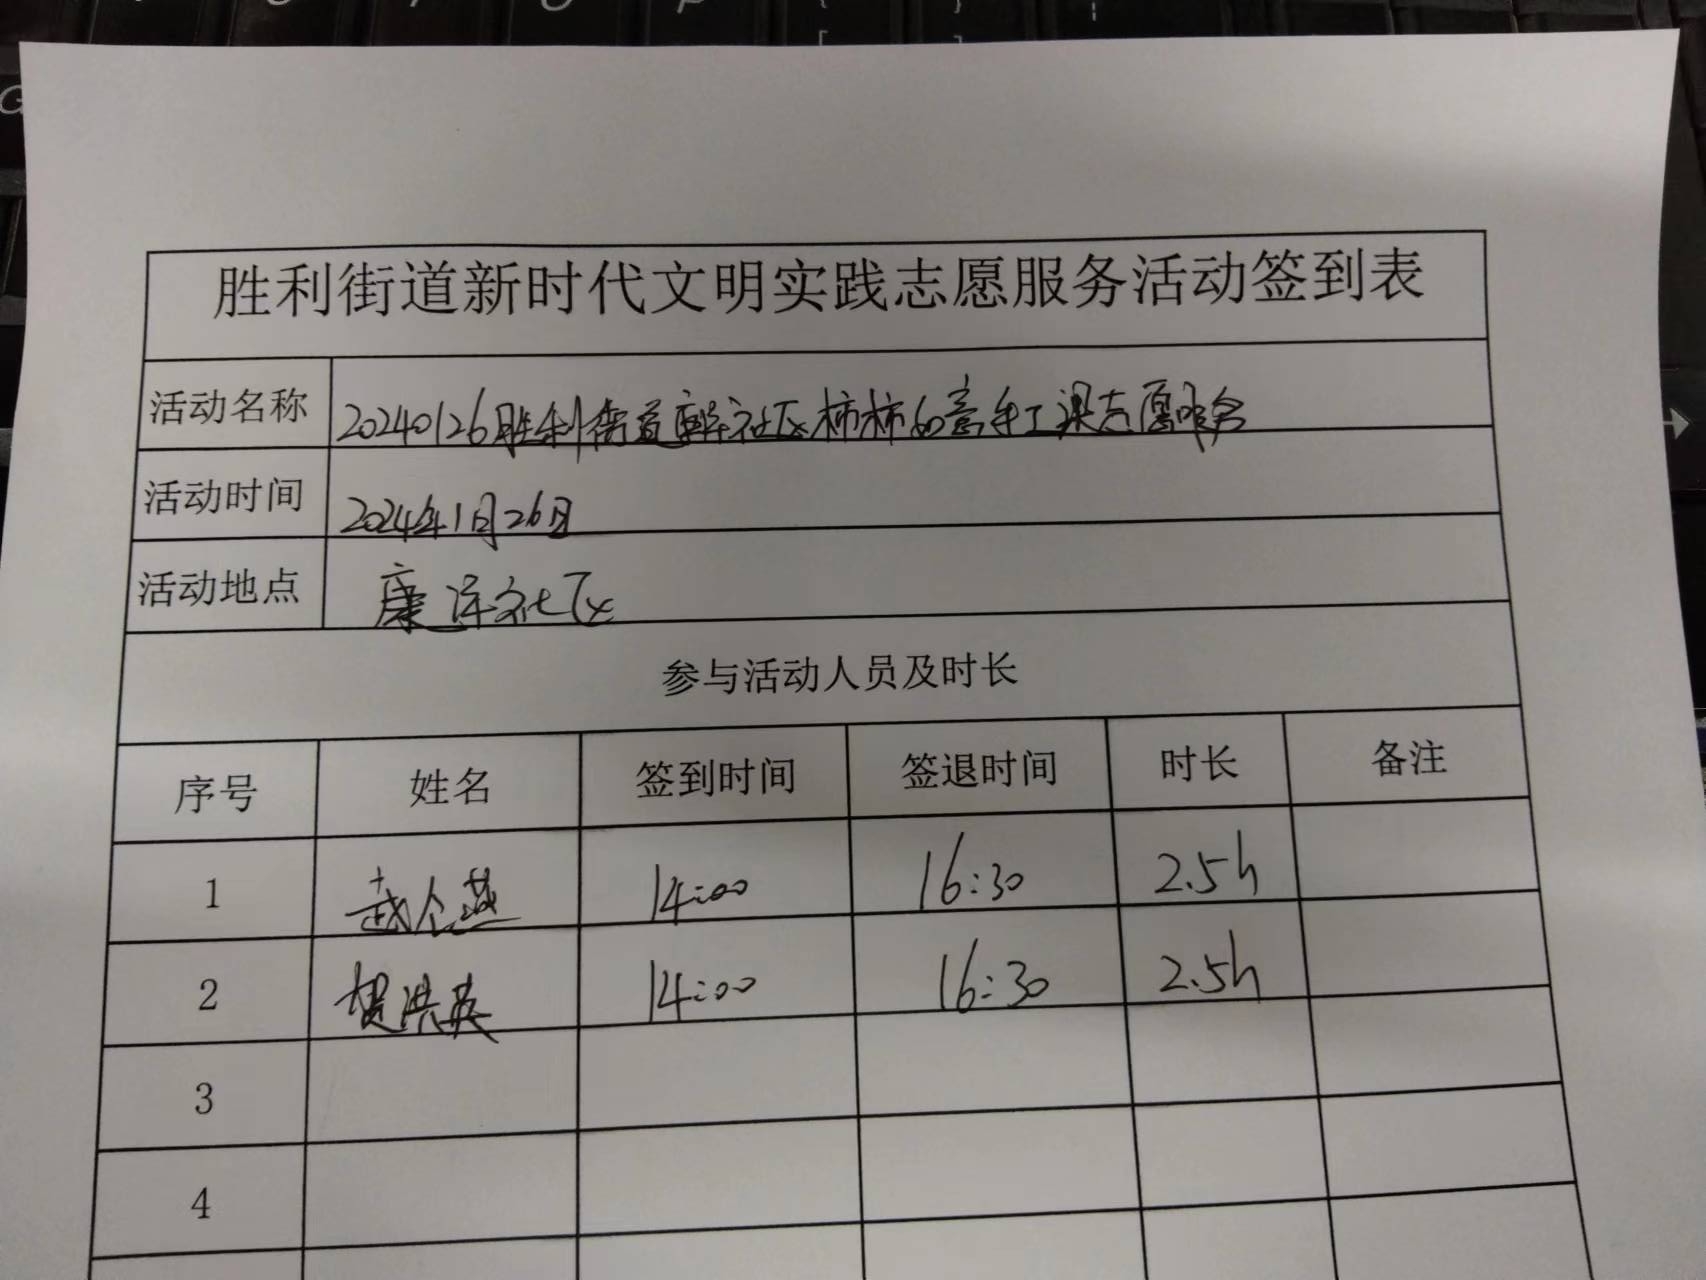 胜利街道新时代文明实践志愿服务活动签到表
活动名称 20240126胜利街道康洋社区柿柿如意手工课志愿服务
活动时间 2024年1月26日
活动地点 康洋社区
参与活动人员及时长
序号 姓名 签到时间 签退时间 时长 备注
1 14:00 16:30 2.5h
2 洪英 14:00 16:30 2.5h
3
4